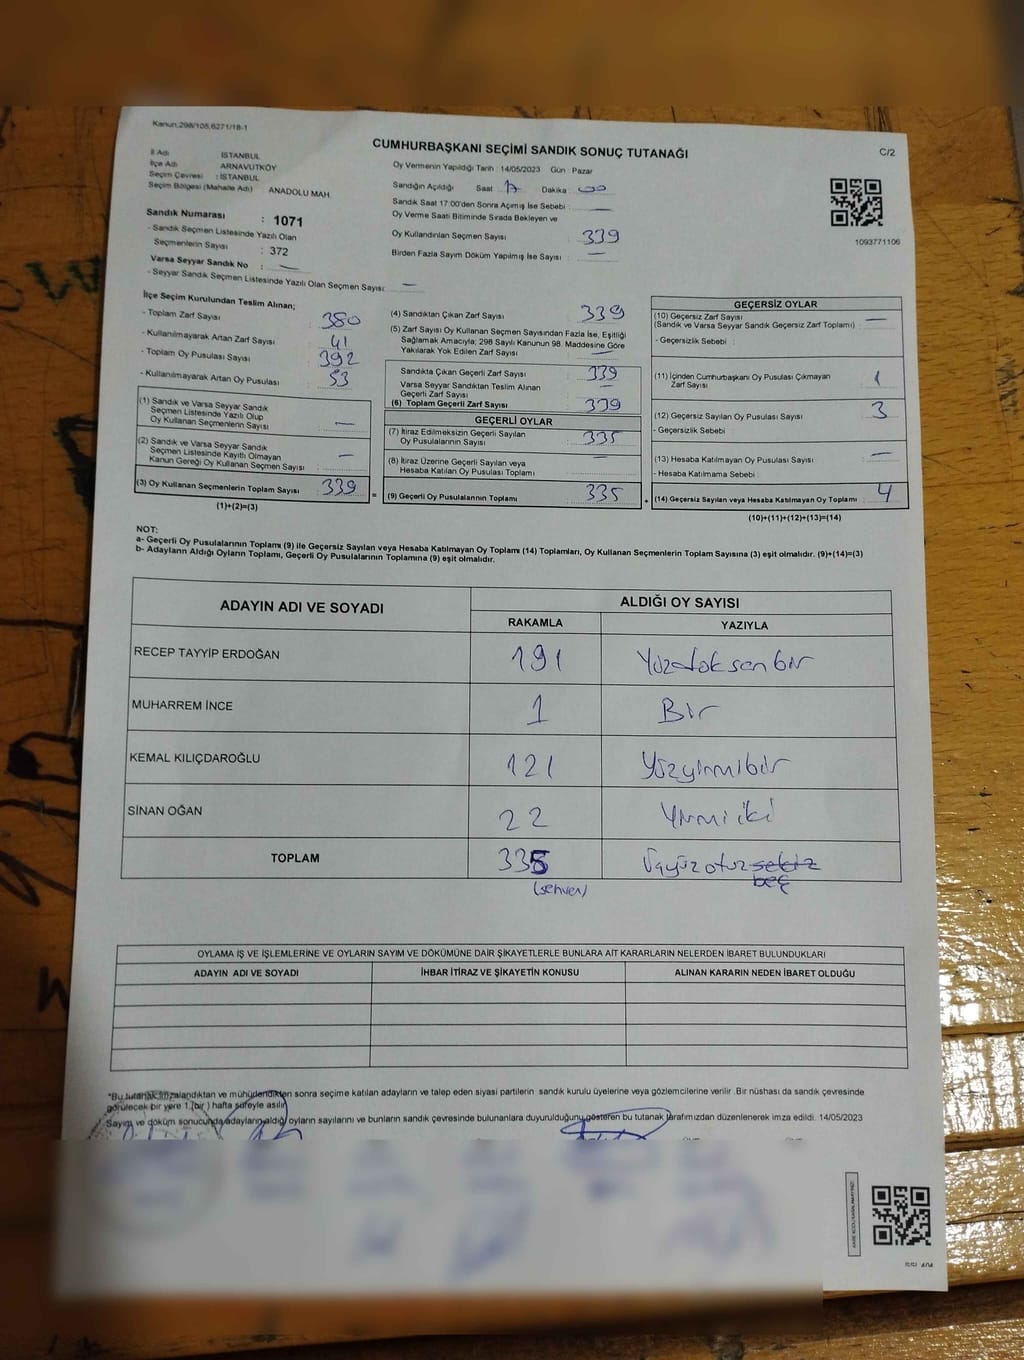 Kanun,298/105,6271/18-1
CUMHURBAŞKANI SEÇİMİ SANDIK SONUÇ TUTANAĞI
C/2
İl Adı : İSTANBUL
İlçe Adı : ARNAVUTKÖY
Seçim Çevresi : İSTANBUL
Seçim Bölgesi (Mahalle Adı) ANADOLU MAH.
Sandık Numarası : 1071
- Sandık Seçmen Listesinde Yazılı Olan
Seçmenlerin Sayısı : 372
Varsa Seyyar Sandık No : —
- Seyyar Sandık Seçmen Listesinde Yazılı Olan Seçmen Sayısı: —
Oy Vermenin Yapıldığı Tarih : 14/05/2023 Gün : Pazar
Sandığın Açıldığı Saat 17 Dakika 00
Sandık Saat 17:00'den Sonra Açılmış İse Sebebi : —
Oy Verme Saati Bitiminde Sırada Bekleyen ve
Oy Kullandırılan Seçmen Sayısı : 339
Birden Fazla Sayım Döküm Yapılmış İse Sayısı : —
1093771106
İlçe Seçim Kurulundan Teslim Alınan;
- Toplam Zarf Sayısı : 380
- Kullanılmayarak Artan Zarf Sayısı : 41
- Toplam Oy Pusulası Sayısı : 392
- Kullanılmayarak Artan Oy Pusulası : 53
(1) Sandık ve Varsa Seyyar Sandık
Seçmen Listesinde Yazılı Olup
Oy Kullanan Seçmenlerin Sayısı : —
(2) Sandık ve Varsa Seyyar Sandık
Seçmen Listesinde Kayıtlı Olmayan
Kanun Gereği Oy Kullanan Seçmen Sayısı : —
(3) Oy Kullanan Seçmenlerin Toplam Sayısı : 339
(1)+(2)=(3)
(4) Sandıktan Çıkan Zarf Sayısı : 339
(5) Zarf Sayısı Oy Kullanan Seçmen Sayısından Fazla İse, Eşitliği
Sağlamak Amacıyla; 298 Sayılı Kanunun 98. Maddesine Göre
Yakılarak Yok Edilen Zarf Sayısı : —
Sandıkta Çıkan Geçerli Zarf Sayısı : 339
Varsa Seyyar Sandıktan Teslim Alınan
Geçerli Zarf Sayısı : —
(6) Toplam Geçerli Zarf Sayısı : 339
GEÇERLİ OYLAR
(7) İtiraz Edilmeksizin Geçerli Sayılan
Oy Pusulalarının Sayısı : 335
(8) İtiraz Üzerine Geçerli Sayılan veya
Hesaba Katılan Oy Pusulası Toplamı : —
= (9) Geçerli Oy Pusulalarının Toplamı : 335 +
GEÇERSİZ OYLAR
(10) Geçersiz Zarf Sayısı : —
(Sandık ve Varsa Seyyar Sandık Geçersiz Zarf Toplamı)
- Geçersizlik Sebebi :
(11) İçinden Cumhurbaşkanı Oy Pusulası Çıkmayan
Zarf Sayısı : 1
(12) Geçersiz Sayılan Oy Pusulası Sayısı : 3
- Geçersizlik Sebebi :
(13) Hesaba Katılmayan Oy Pusulası Sayısı : —
- Hesaba Katılmama Sebebi :
(14) Geçersiz Sayılan veya Hesaba Katılmayan Oy Toplamı : 4
(10)+(11)+(12)+(13)=(14)
NOT:
a- Geçerli Oy Pusulalarının Toplamı (9) ile Geçersiz Sayılan veya Hesaba Katılmayan Oy Toplamı (14) Toplamları, Oy Kullanan Seçmenlerin Toplam Sayısına (3) eşit olmalıdır. (9)+(14)=(3)
b- Adayların Aldığı Oyların Toplamı, Geçerli Oy Pusulalarının Toplamına (9) eşit olmalıdır.
ADAYIN ADI VE SOYADI
ALDIĞI OY SAYISI
RAKAMLA YAZIYLA
RECEP TAYYİP ERDOĞAN 191 Yüzdoksanbir
MUHARREM İNCE 1 Bir
KEMAL KILIÇDAROĞLU 121 Yüzyirmibir
SİNAN OĞAN 22 Yirmi iki
TOPLAM 335 Üçyüzotuz sekiz
(sehven) beş
OYLAMA İŞ VE İŞLEMLERİNE VE OYLARIN SAYIM VE DÖKÜMÜNE DAİR ŞİKAYETLERLE BUNLARA AİT KARARLARIN NELERDEN İBARET BULUNDUKLARI
ADAYIN ADI VE SOYADI İHBAR İTİRAZ VE ŞİKAYETİN KONUSU ALINAN KARARIN NEDEN İBARET OLDUĞU
*Bu tutanak imzalandıktan ve mühürlendikten sonra seçime katılan adayların ve talep eden siyasi partilerin sandık kurulu üyelerine veya gözlemcilerine verilir. Bir nüshası da sandık çevresinde
görülecek bir yere 1 (bir) hafta süreyle asılır.
Sayım ve döküm sonucunda adayların aldığı oyların sayılarını ve bunların sandık çevresinde bulunanlara duyurulduğunu gösteren bu tutanak tarafımızdan düzenlenerek imza edildi. 14/05/2023